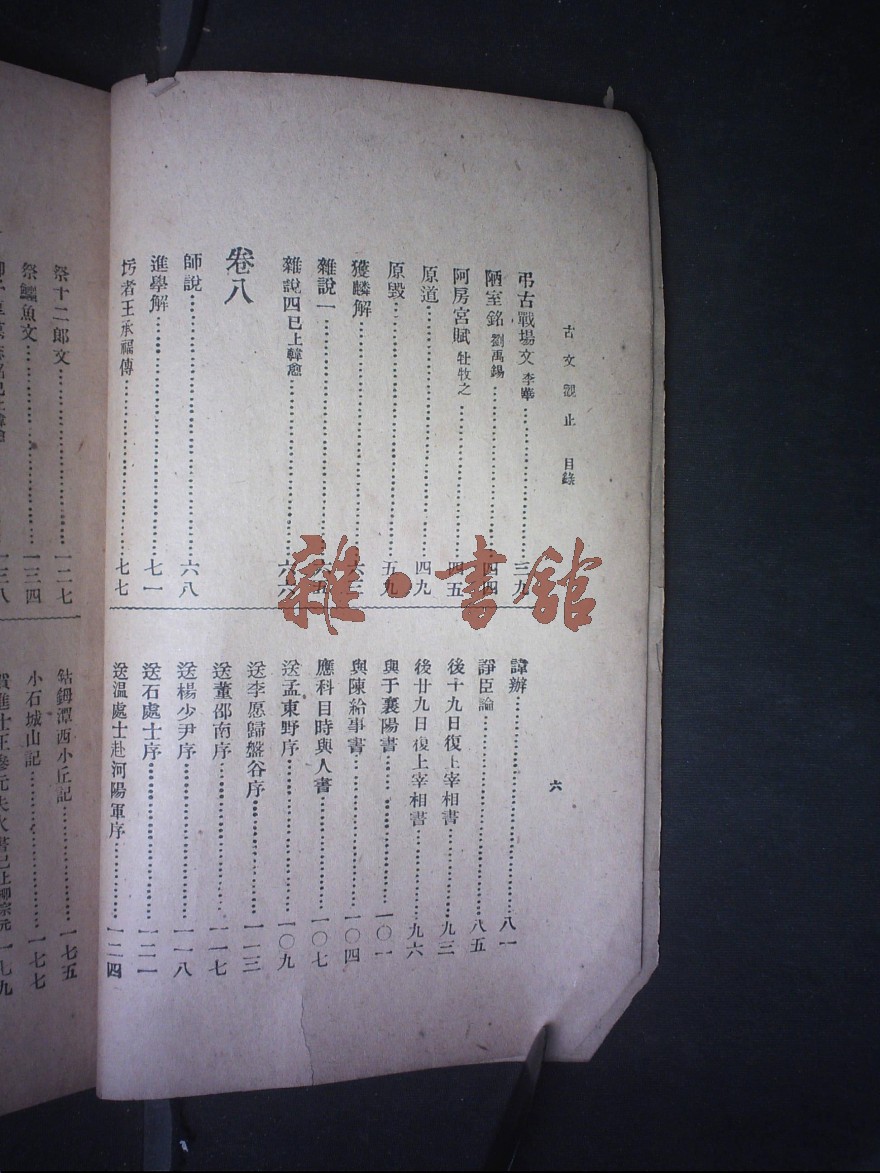 古文觀止 目錄
六
弔古戰場文 李華 三九
陋室銘 劉禹錫 四四
阿房宮賦 杜牧之 四五
原道 四九
原毀 五九
獲麟解 六
雜說一 六五
雜說四 已上韓愈 六六
卷八
師說 六八
進學解 七一
圬者王承福傳 七七
諱辦 八一
諍臣論 八五
後十九日復上宰相書 九三
後廿九日復上宰相書 九六
與于襄陽書 一〇一
與陳給事書 一〇四
應科目時與人書 一〇七
送孟東野序 一〇九
送李愿歸盤谷序 一一三
送董邵南序 一一七
送楊少尹序 一一八
送石處士序 一二一
送温處士赴河陽軍序 一二四
祭十二郎文 一二七
祭鱷魚文 一三四
一三八
鈷鉧潭西小丘記 一七五
小石城山記 一七七
賀進士王參元失火書 已上柳宗元 一七九
雜·書館